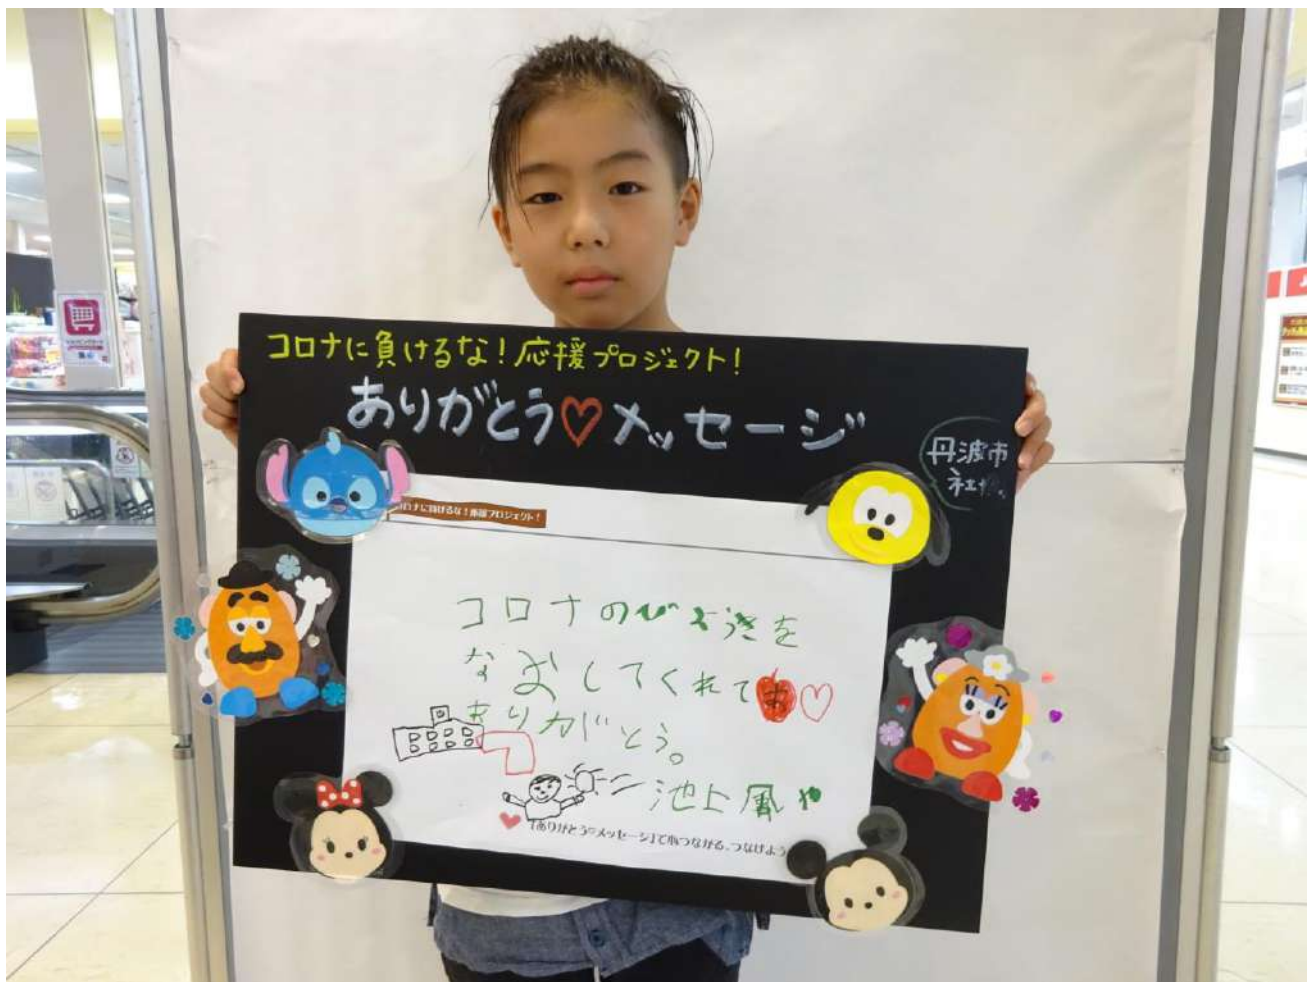 コロナに負けるな！応援プロジェクト！
ありがとう♡メッセージ
丹波市
コロナに負けるな！応援プロジェクト！
コロナのびょうきを
なおしてくれて
ありがとう。
池上風や
「ありがとう♡メッセージ」で心つながる、つなげよう